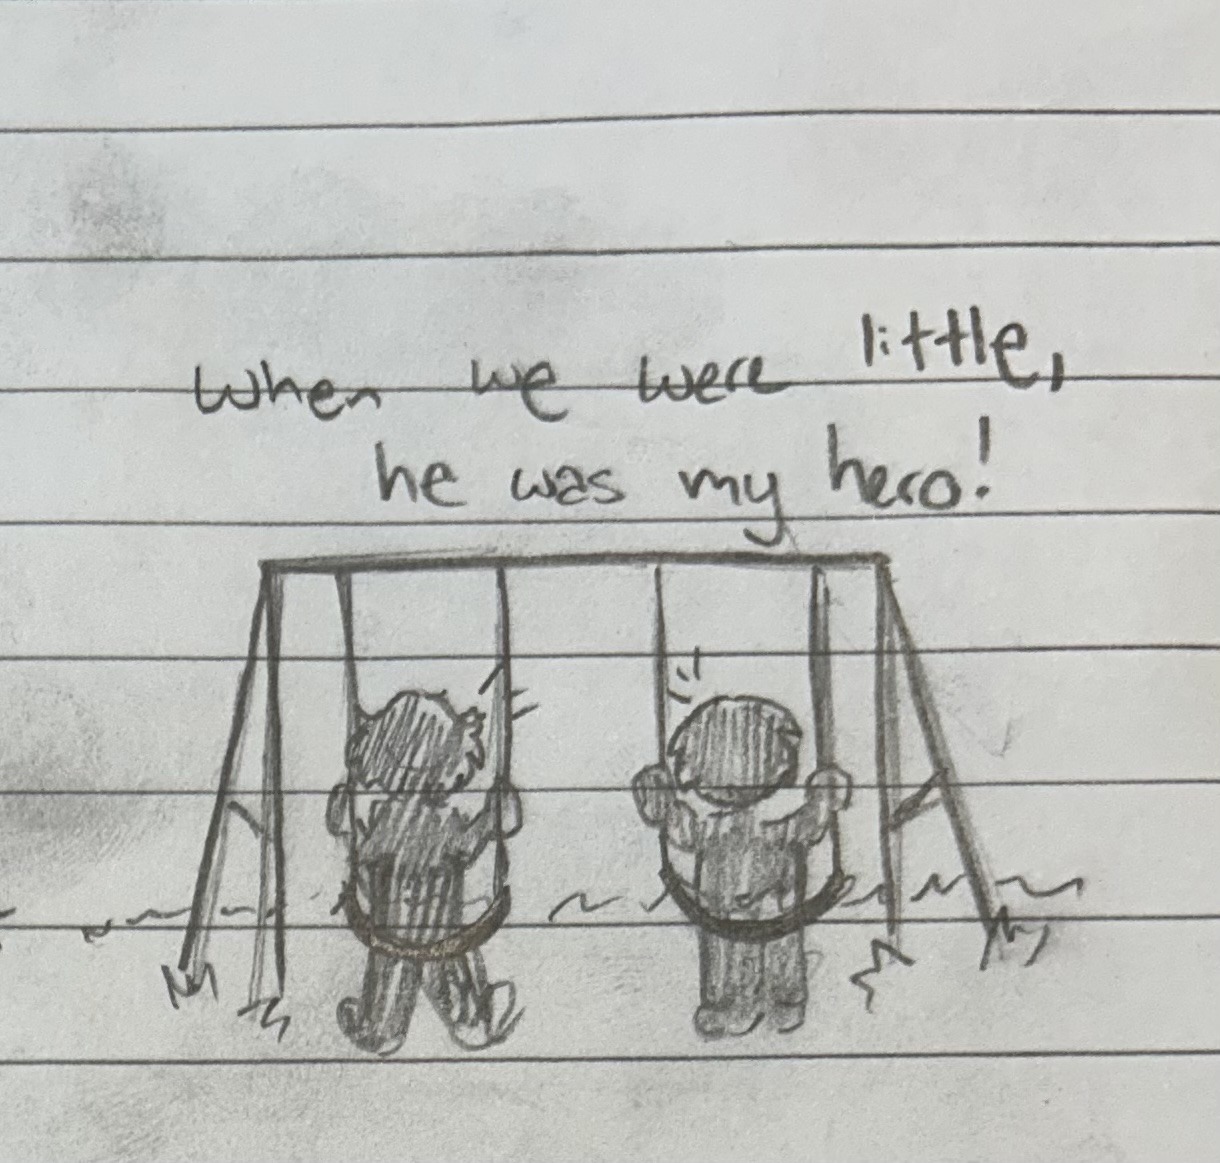 When we were little,
he was my hero!